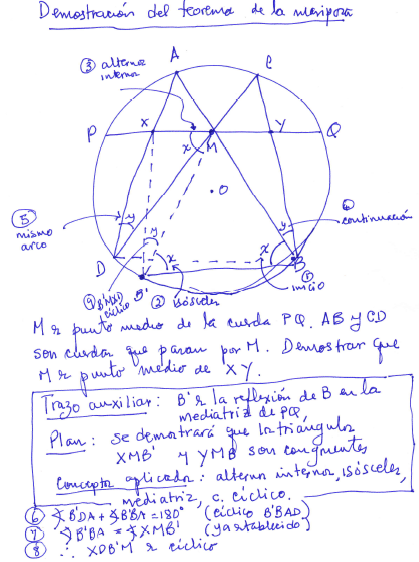 Demostración del teorema de la mariposa
③ alterno
interno
A
C
P
X
M
Y
Q
x
O
⑤
mismo
arco
y
y
④
continuación
D
y
x
x
B
B'
① inicio
⑨ B'MXD
cíclico
② isósceles
M es punto medio de la cuerda PQ. AB y CD
son cuerdas que pasan por M. Demostrar que
M es punto medio de XY.
Trazo auxiliar: B' es la reflexión de B en la
mediatriz de PQ,
Plan: se demostrará que los triángulos
XMB' y YMB son congruentes
Conceptos aplicados: alternos internos, isósceles,
mediatriz, c. cíclico.
⑥ ∢B'DA + ∢B'BA = 180° (cíclico B'BAD)
⑦ ∢B'BA = ∢XMB' (ya establecido)
⑧ ∴ XDB'M es cíclico